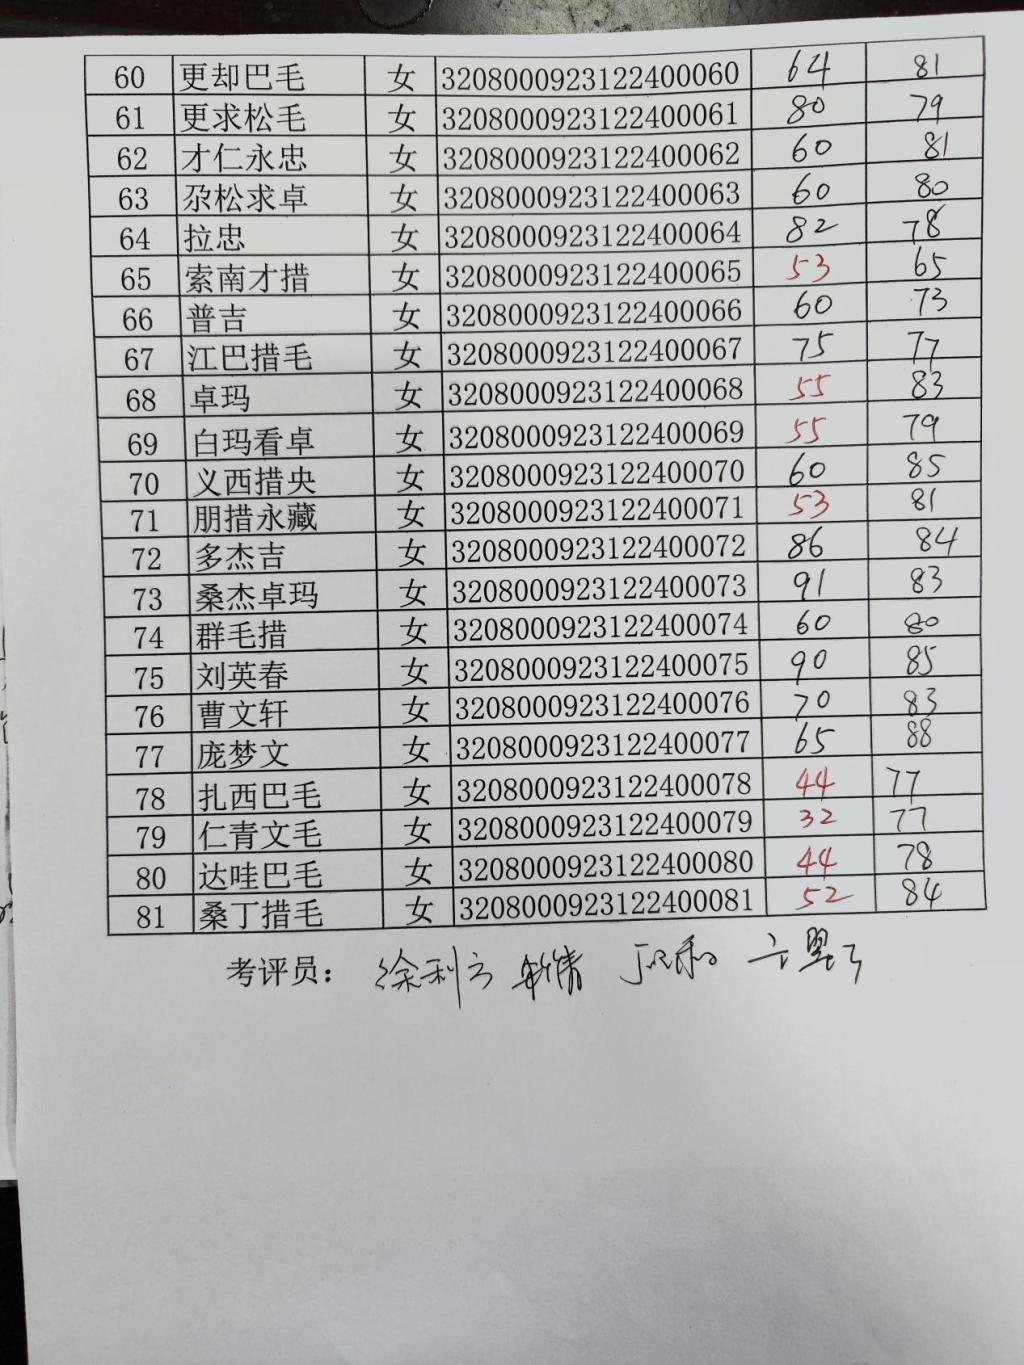 60 更却巴毛 女 3208000923122400060 64 81
61 更求松毛 女 3208000923122400061 80 79
62 才仁永忠 女 3208000923122400062 60 81
63 尕松求卓 女 3208000923122400063 60 80
64 拉忠 女 3208000923122400064 82 78
65 索南才措 女 3208000923122400065 53 65
66 普吉 女 3208000923122400066 60 73
67 江巴措毛 女 3208000923122400067 75 77
68 卓玛 女 3208000923122400068 55 83
69 白玛看卓 女 3208000923122400069 55 79
70 义西措央 女 3208000923122400070 60 85
71 朋措永藏 女 3208000923122400071 53 81
72 多杰吉 女 3208000923122400072 86 84
73 桑杰卓玛 女 3208000923122400073 91 83
74 群毛措 女 3208000923122400074 60 80
75 刘英春 女 3208000923122400075 90 85
76 曹文轩 女 3208000923122400076 70 83
77 庞梦文 女 3208000923122400077 65 88
78 扎西巴毛 女 3208000923122400078 44 77
79 仁青文毛 女 3208000923122400079 32 77
80 达哇巴毛 女 3208000923122400080 44 78
81 桑丁措毛 女 3208000923122400081 52 84
考评员：